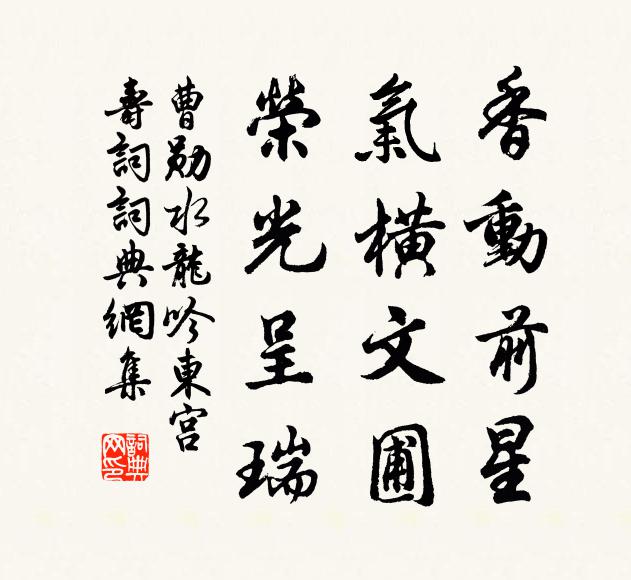 香動前星
氣橫文圃
榮光呈瑞
曹勛水龍吟東宮
壽詞詞典網集
詞典
网印